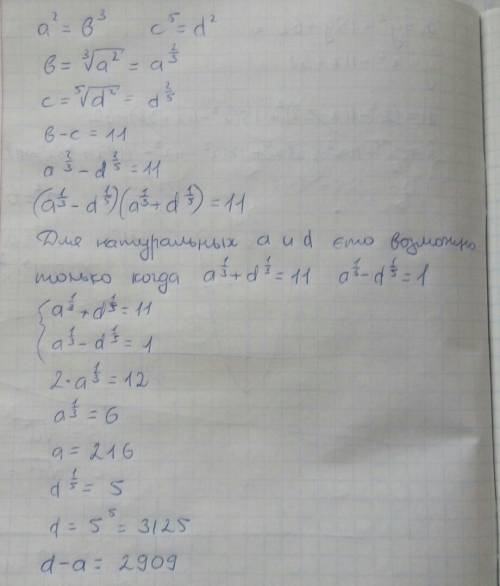 a² = в³ c⁵ = d²
в = ∛a² = a^(2/3)
c = ⁵√d² = d^(2/5)
в - c = 11
a^(2/3) - d^(2/5) = 11
(a^(1/3) - d^(1/5))(a^(1/3) + d^(1/5)) = 11
Для натуральных a и d ето возможно
только когда a^(1/3) + d^(1/5) = 11 a^(1/3) - d^(1/5) = 1
{a^(1/3) + d^(1/5) = 11
a^(1/3) - d^(1/5) = 1
2·a^(1/3) = 12
a^(1/3) = 6
a = 216
d^(1/5) = 5
d = 5⁵ = 3125
d - a = 2909